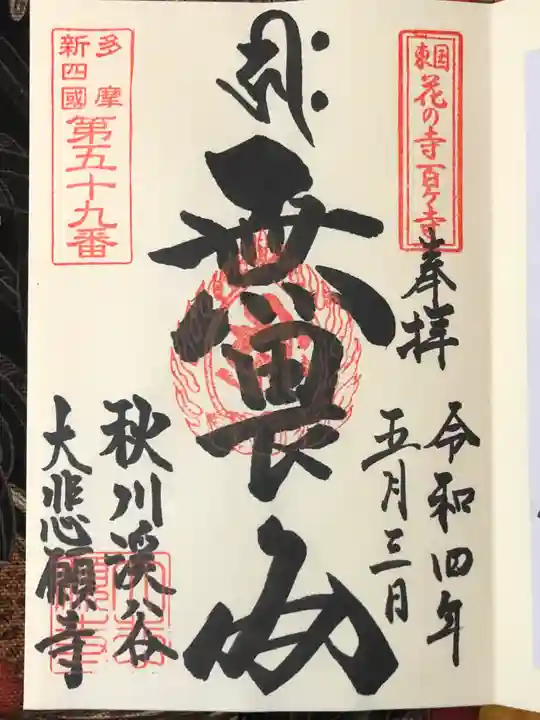 東国
花の寺百ヶ寺
奉拝
令和四年
五月三日
無畏
秋川渓谷
大悲願寺
多摩
新四國
第五十九番